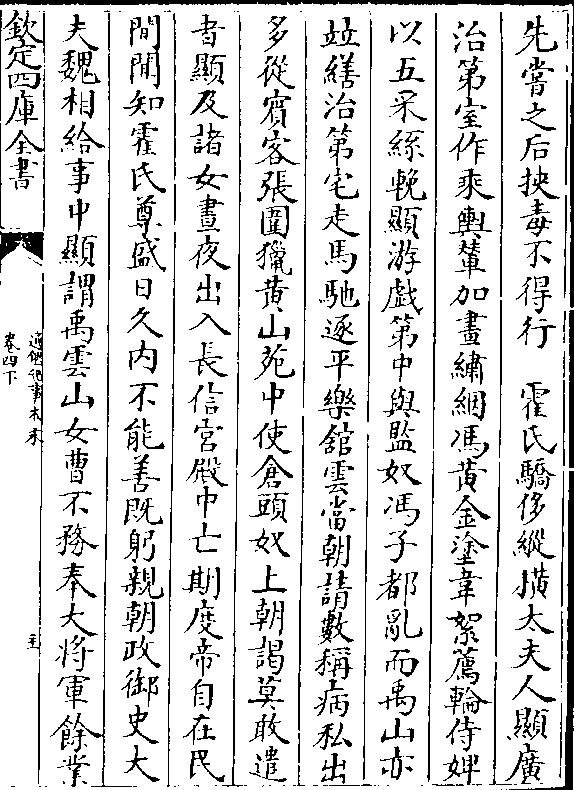 先嘗之后挾毒不得行　霍氏驕侈縱横太夫人顯廣
治第室作乘輿輦加畫繡絪馮黄金塗韋絮薦輪侍婢
以五采絲輓顯游戲第中與監奴馮子都亂而禹山亦
竝繕治第宅走馬馳逐平樂舘雲當朝請數稱病私出
多從賓客張圍獵黄山苑中使倉頭奴上朝謁莫敢遣
者顯及諸女晝夜出入長信宮殿中亡期度帝自在民
間聞知霍氏尊盛日久内不能善既躬親朝政御史大
夫魏相給事中顯謂禹雲山女曹不務奉大將軍餘業
欽定四庫全書
通鑑紀事本末
卷四下